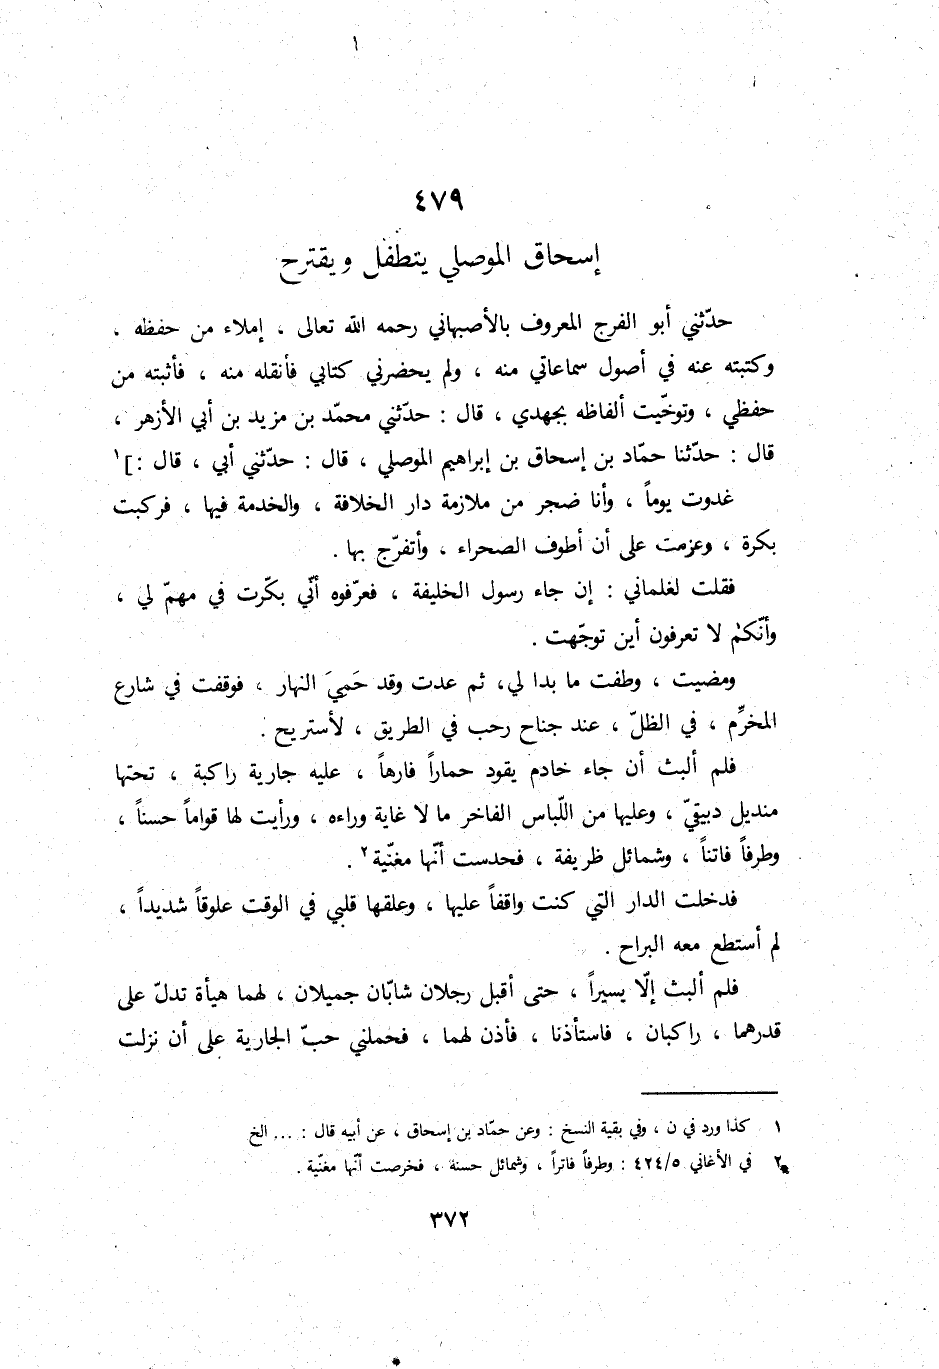 ٤٧٩
إسحاق الموصلي يتطفل ويقترح
حدّثني أبو الفرج المعروف بالأصبهاني رحمه الله تعالى ، إملاء من حفظه ،
وكتبته عنه في أصول سماعاتي منه ، ولم يحضرني كتابي فأنقله منه ، فأثبته من
حفظي ، وتوخّيت ألفاظه بجهدي ، قال : حدّثني محمّد بن مزيد بن أبي الأزهر ،
قال : حدّثنا حمّاد بن إسحاق بن إبراهيم الموصلي ، قال : حدّثني أبي ، قال :]١
غدوت يوماً ، وأنا ضجر من ملازمة دار الخلافة ، والخدمة فيها ، فركبت
بكرة ، وعزمت على أن أطوف الصحراء ، وأتفرّج بها .
فقلت لغلماني : إن جاء رسول الخليفة ، فعرّفوه أنّي بكّرت في مهمّ لي ،
وأنّكم لا تعرفون أين توجّهت .
ومضيت ، وطفت ما بدا لي، ثم عدت وقد حَمِيَ النهار ، فوقفت في شارع
المخرِّم ، في الظلّ ، عند جناح رحب في الطريق ، لأستريح .
فلم ألبث أن جاء خادم يقود حماراً فارهاً ، عليه جارية راكبة ، تحتها
منديل دبيقيّ ، وعليها من اللّباس الفاخر ما لا غاية وراءه ، ورأيت لها قواماً حسناً ،
وطرفاً فاتناً ، وشمائل ظريفة ، فحدست أنّها مغنّية٢ .
فدخلت الدار التي كنت واقفاً عليها ، وعلقها قلبي في الوقت علوقاً شديداً ،
لم أستطع معه البراح .
فلم ألبث إلّا يسيراً ، حتى أقبل رجلان شابّان جميلان ، لهما هيأة تدلّ على
قدرهما ، راكبان ، فاستأذنا ، فأذن لهما ، فحملني حبّ الجارية على أن نزلت
١ كذا ورد في ن ، وفي بقية النسخ : وعن حمّاد بن إسحاق ، عن أبيه قال : ... الخ
٢ في الأغاني ٤٢٤/٥ : وطرفاً فاتراً ، وشمائل حسنة ، فخرصت أنّها مغنّية .
٣٧٢